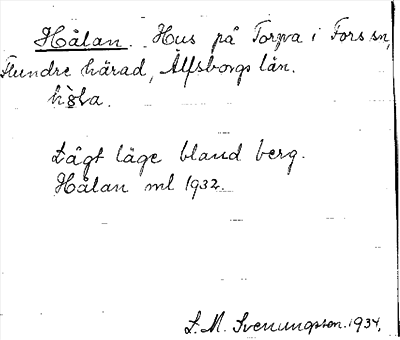 Hålan. Hus på Torpa i Fors sn,
Flundre härad, Älfsborgs län.
Lågt läge bland berg.
Hålan ml 1932.
S. M. Svenungsson. 1934.